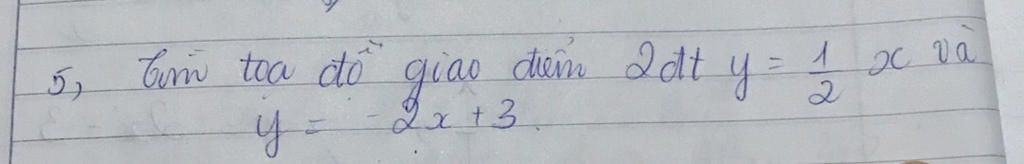 5, Tìm toạ độ giao điểm 2đt y = 1/2 x và
y = -2x + 3.